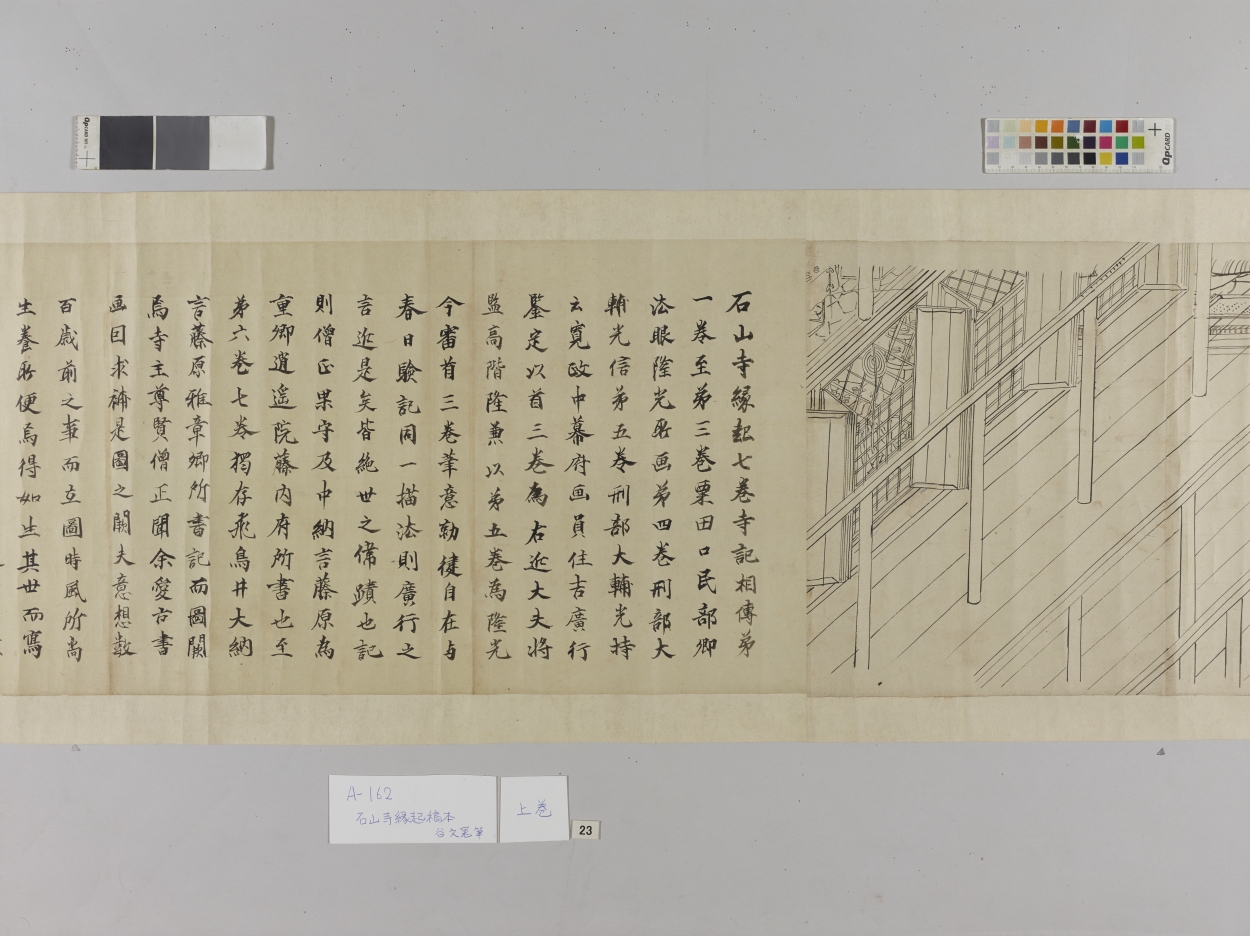 石山寺縁起七巻寺記相傳第
一巻至第三巻粟田口民部卿
法眼隆光所画第四巻刑部大
輔光信第五巻刑部大輔光持
云寛政中幕府画員住吉廣行
鑒定以首三巻為右近大夫将
監高階隆兼以第五巻為隆光
今審首三巻筆意勁健自在与
春日驗記同一描法則廣行之
言近是矣皆絶世之偉蹟也記
則僧正果守及中納言藤原為
重卿逍遥院藤内府所書也至
第六巻七巻獨存飛鳥井大納
言藤原雅章卿所書記而圖闕
焉寺主尊賢僧正聞余愛古書
画因求補是圖之闕夫意想數
百歳前之事而立圖時風所尚
生養所便焉得如生其世而寫
A-162
石山寺縁起稿本
谷文晁筆
上巻
23
QPCARD